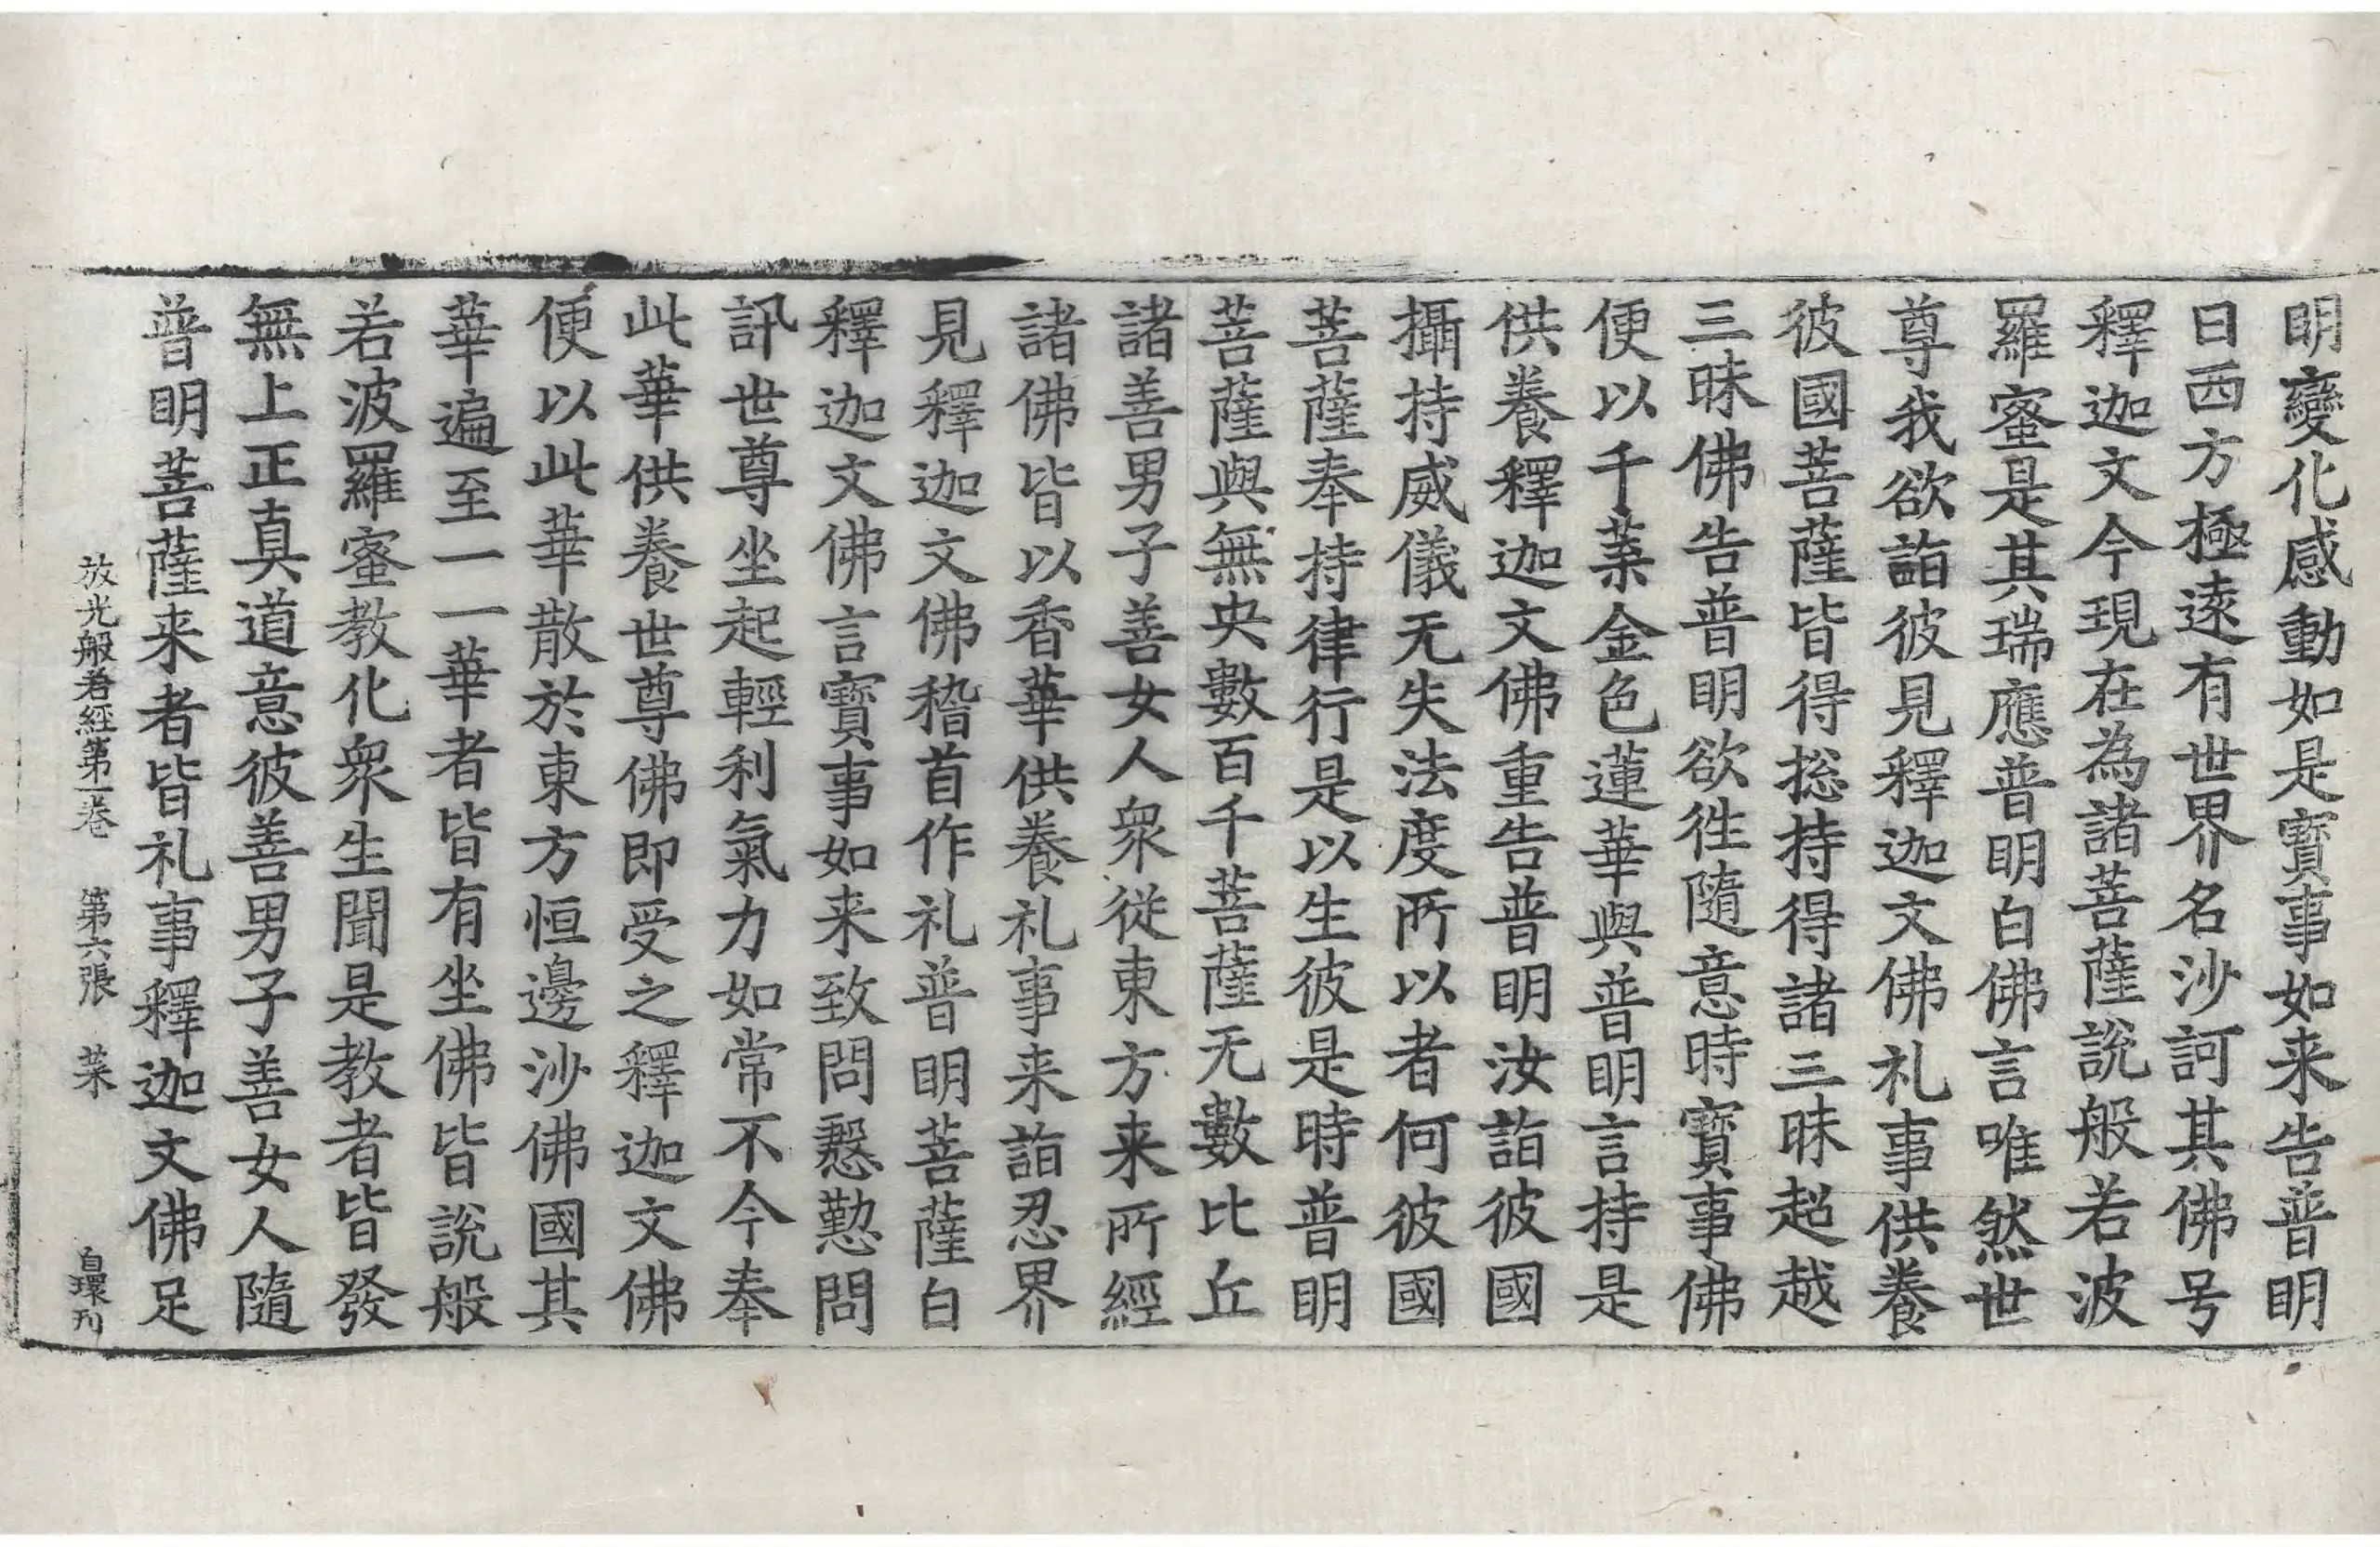 明變化感動如是寶事如来告普明
曰西方極遠有世界名沙訶其佛号
釋迦文今現在為諸菩薩說般若波
羅蜜是其瑞應普明白佛言唯然世
尊我欲詣彼見釋迦文佛礼事供養
彼國菩薩皆得捴持得諸三昧超越
三昧佛告普明欲徃隨意時寶事佛
便以千葉金色蓮華與普明言持是
供養釋迦文佛重告普明汝詣彼國
攝持威儀无失法度所以者何彼國
菩薩奉持律行是以生彼是時普明
菩薩與無央數百千菩薩无數比丘
諸善男子善女人衆從東方来所經
諸佛皆以香華供養礼事来詣忍界
見釋迦文佛稽首作礼普明菩薩白
釋迦文佛言寶事如来致問慇懃問
訊世尊坐起輕利氣力如常不今奉
此華供養世尊佛即受之釋迦文佛
便以此華散於東方恒邊沙佛國其
華遍至一一華者皆有坐佛皆說般
若波羅蜜教化衆生聞是教者皆發
無上正真道意彼善男子善女人隨
普明菩薩来者皆礼事釋迦文佛足
放光般若經第一卷 第六張 菜 自環刊